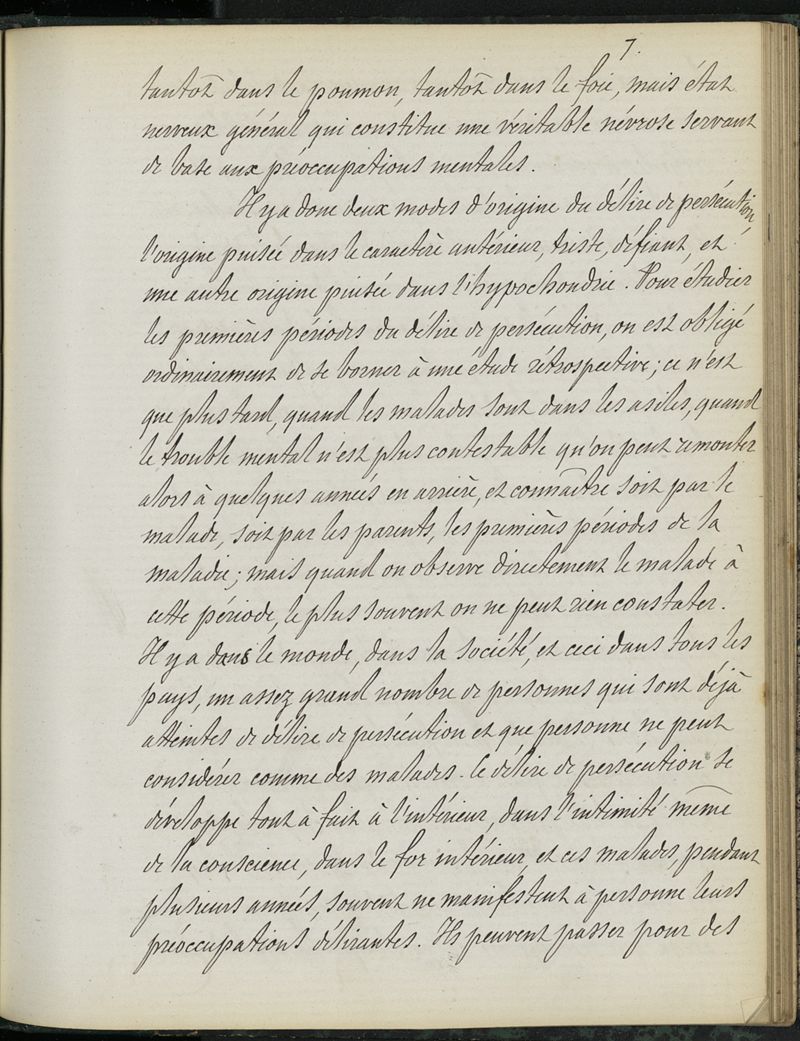 7.
tantôt dans le poumon, tantôt dans le foie, mais état
nerveux général qui constitue une véritable névrose servant
de base aux préoccupations mentales.
Il y a donc deux modes d'origine du délire de persécution,
l'origine puisée dans le caractère antérieur, triste, défiant, et
une autre origine puisée dans l'hypochondrie. Pour étudier
les premières périodes du délire de persécution, on est obligé
ordinairement de se borner à une étude rétrospective; ce n'est
que plus tard, quand les malades sont dans les asiles, quand
le trouble mental n'est plus contestable qu'on peut remonter
alors à quelques années en arrière, et connaître soit par le
malade, soit par les parents, les premières périodes de la
maladie; mais quand on observe directement le malade à
cette période, le plus souvent on ne peut rien constater.
Il y a dans le monde, dans la société, et ceci dans tous les
pays, un assez grand nombre de personnes qui sont déjà
atteintes de délire de persécution et que personne ne peut
considérer comme des malades. Le délire de persécution se
développe tout à fait à l'intérieur, dans l'intimité même
de la conscience, dans le for intérieur, et ces malades, pendant
plusieurs années, souvent ne manifestent à personne leurs
préoccupations délirantes. Ils peuvent passer pour des